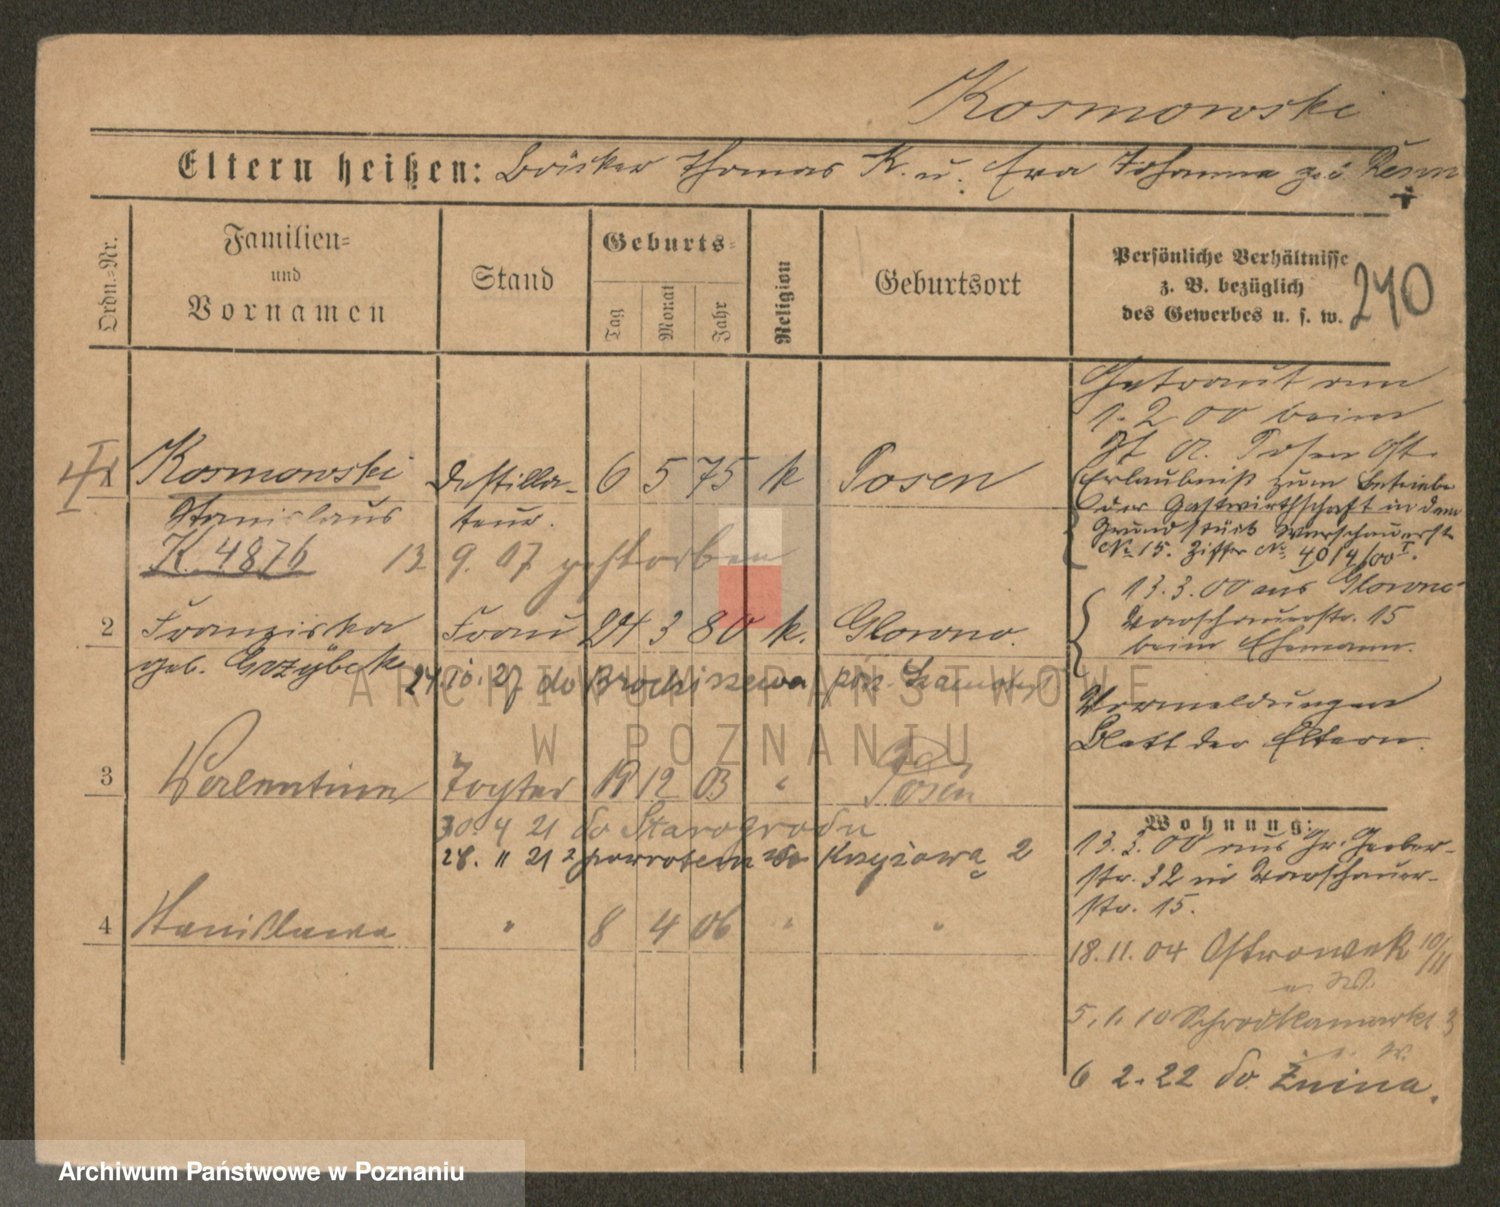 Kosmowski
Eltern heißen: Thomas K. u. Eva Johanna geb.
Ordn.=Nr.
Familien=
und
Vornamen
Stand
Geburts=
Tag
Monat
Jahr
Religion
Geburtsort
Persönliche Verhältnisse
z. B. bezüglich
des Gewerbes u. s. w.
240
Getraut am
1.2.00 beim
St. A. Posen Ost.
Erlaubniß zum Betriebe
der Gastwirthschaft in dem
Grundstück Warschauerstr.
No. 15. Ziffer No. 4014/00 I.
13.3.00 aus Glowno
Warschauerstr. 15
beim Ehemann.
Vermeldungen
Blatt der Eltern.
Kosmowski Destilla- 6 5 75 k Posen
Stanislaus teur.
K. 4876 13 9. 07 gestorben
2 Franziska Frau 24 3 80 k. Glowno.
geb. 24.10.27 do
3 Valentine Tochter 12 03 " Posen
30. 4 21 do Starogrodu
28. 11 21 z powrotem Krzyżowa 2
4 Stanislawa " 8 4 06 " "
Wohnung:
13.3.00 aus Gr. Gerber-
str. 32 in Warschauer-
str. 15.
18.11.04 Ostrowek 10/11
5.1.10 Schrodkamarkt 3
6 2.22 do Żnina.
ARCHIWUM PAŃSTWOWE
W POZNANIU
Archiwum Państwowe w Poznaniu